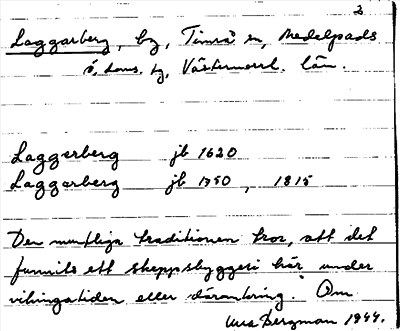 2
Laggarberg, by, Timrå sn, Medelpads
ö. doms. hg, Västernorrl. län.
Laggerberg jb 1620
Laggarberg jb 1750, 1815
Den muntliga traditionen tror, att det
funnits ett skeppsbyggeri här under
vikingatiden eller däromkring. Om
Bergman 1944.